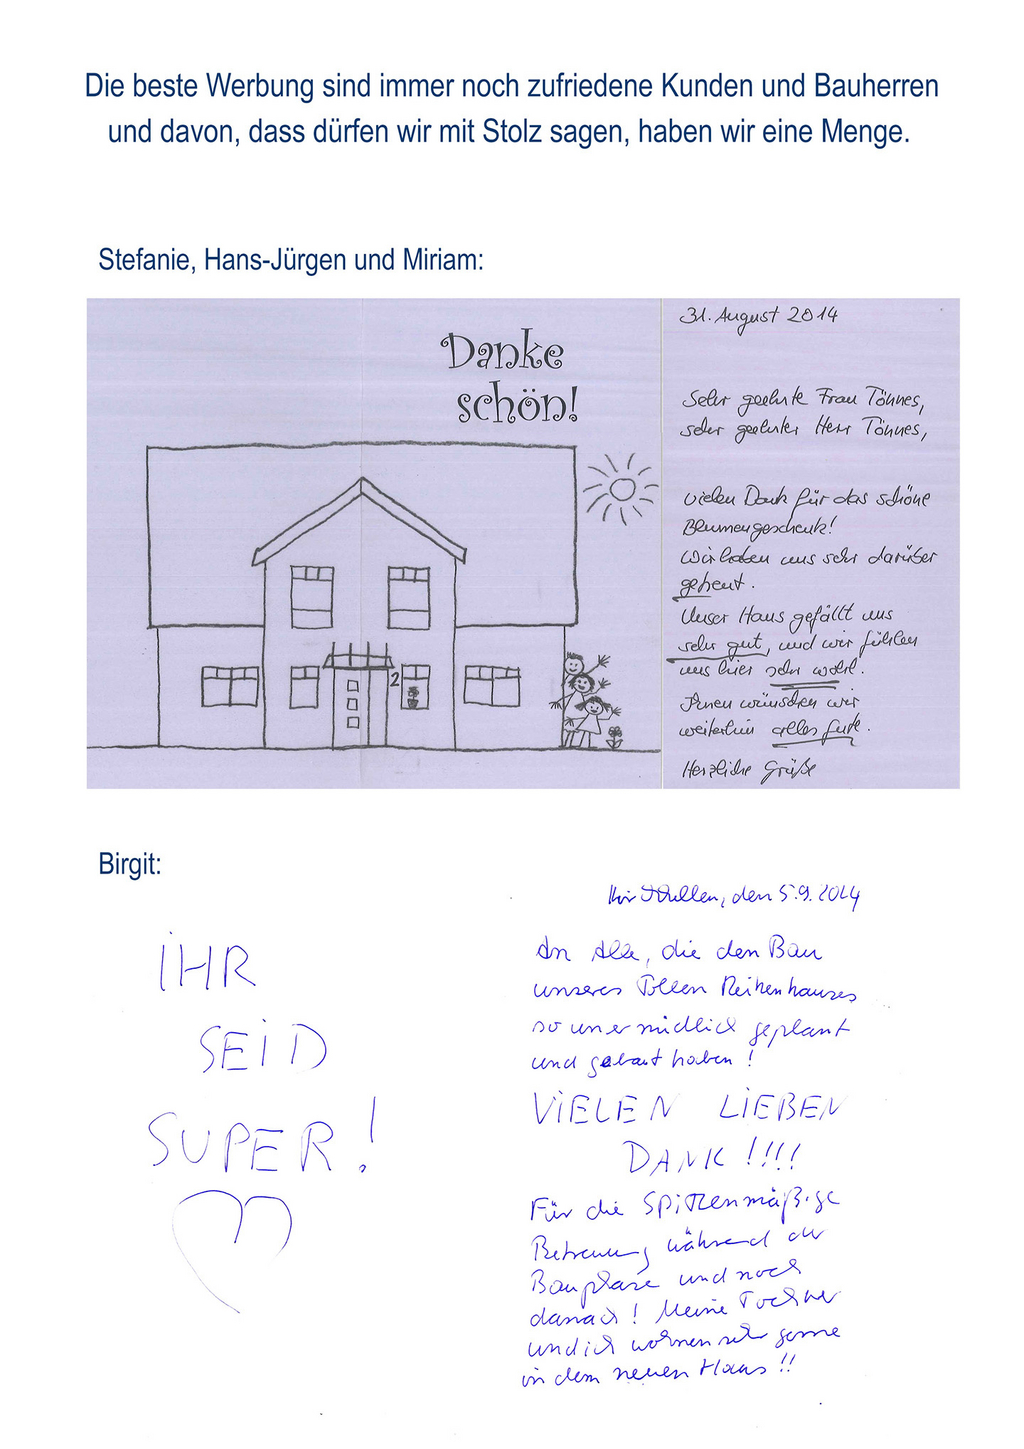 Die beste Werbung sind immer noch zufriedene Kunden und Bauherren
und davon, dass dürfen wir mit Stolz sagen, haben wir eine Menge.
Stefanie, Hans-Jürgen und Miriam:
Danke
schön!
2
31. August 2014
Sehr geehrte Frau Tönnes,
sehr geehrter Herr Tönnes,
vielen Dank für das schöne
Blumengeschenk!
Wir haben uns sehr darüber
gefreut.
Unser Haus gefällt uns
sehr gut, und wir fühlen
uns hier sehr wohl.
Ihnen wünschen wir
weiterhin alles Gute.
Herzliche Grüße
Birgit:
IHR
SEID
SUPER!
den 5.9.2014
An Alle, die den Bau
unseres Tollen Reihenhauses
so unermüdlich geplant
und gebaut haben!
VIELEN LIEBEN
DANK!!!!
Für die Spitzenmäßige
Betreuung während der
Bauphase und noch
danach! Meine Tochter
und ich wohnen sehr gerne
in dem neuen Haus!!